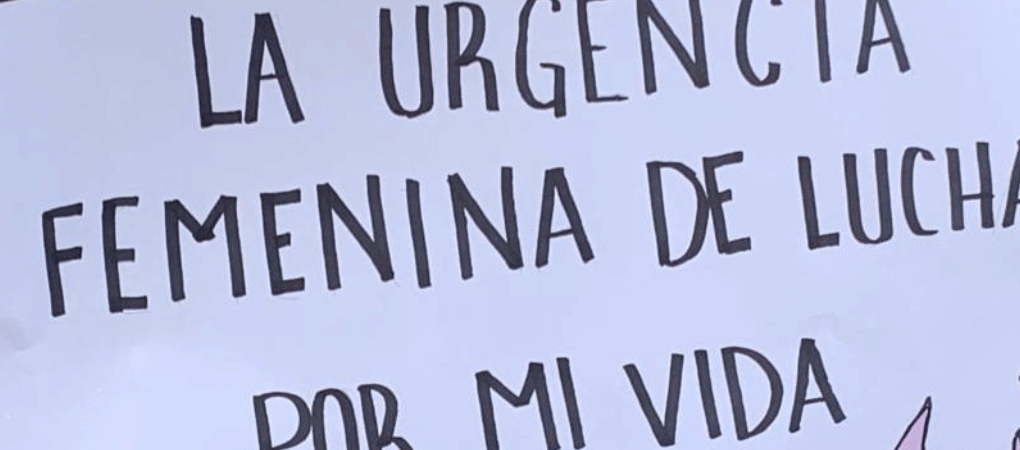 LA URGENCIA
FEMENINA DE LUCHA
POR MI VIDA